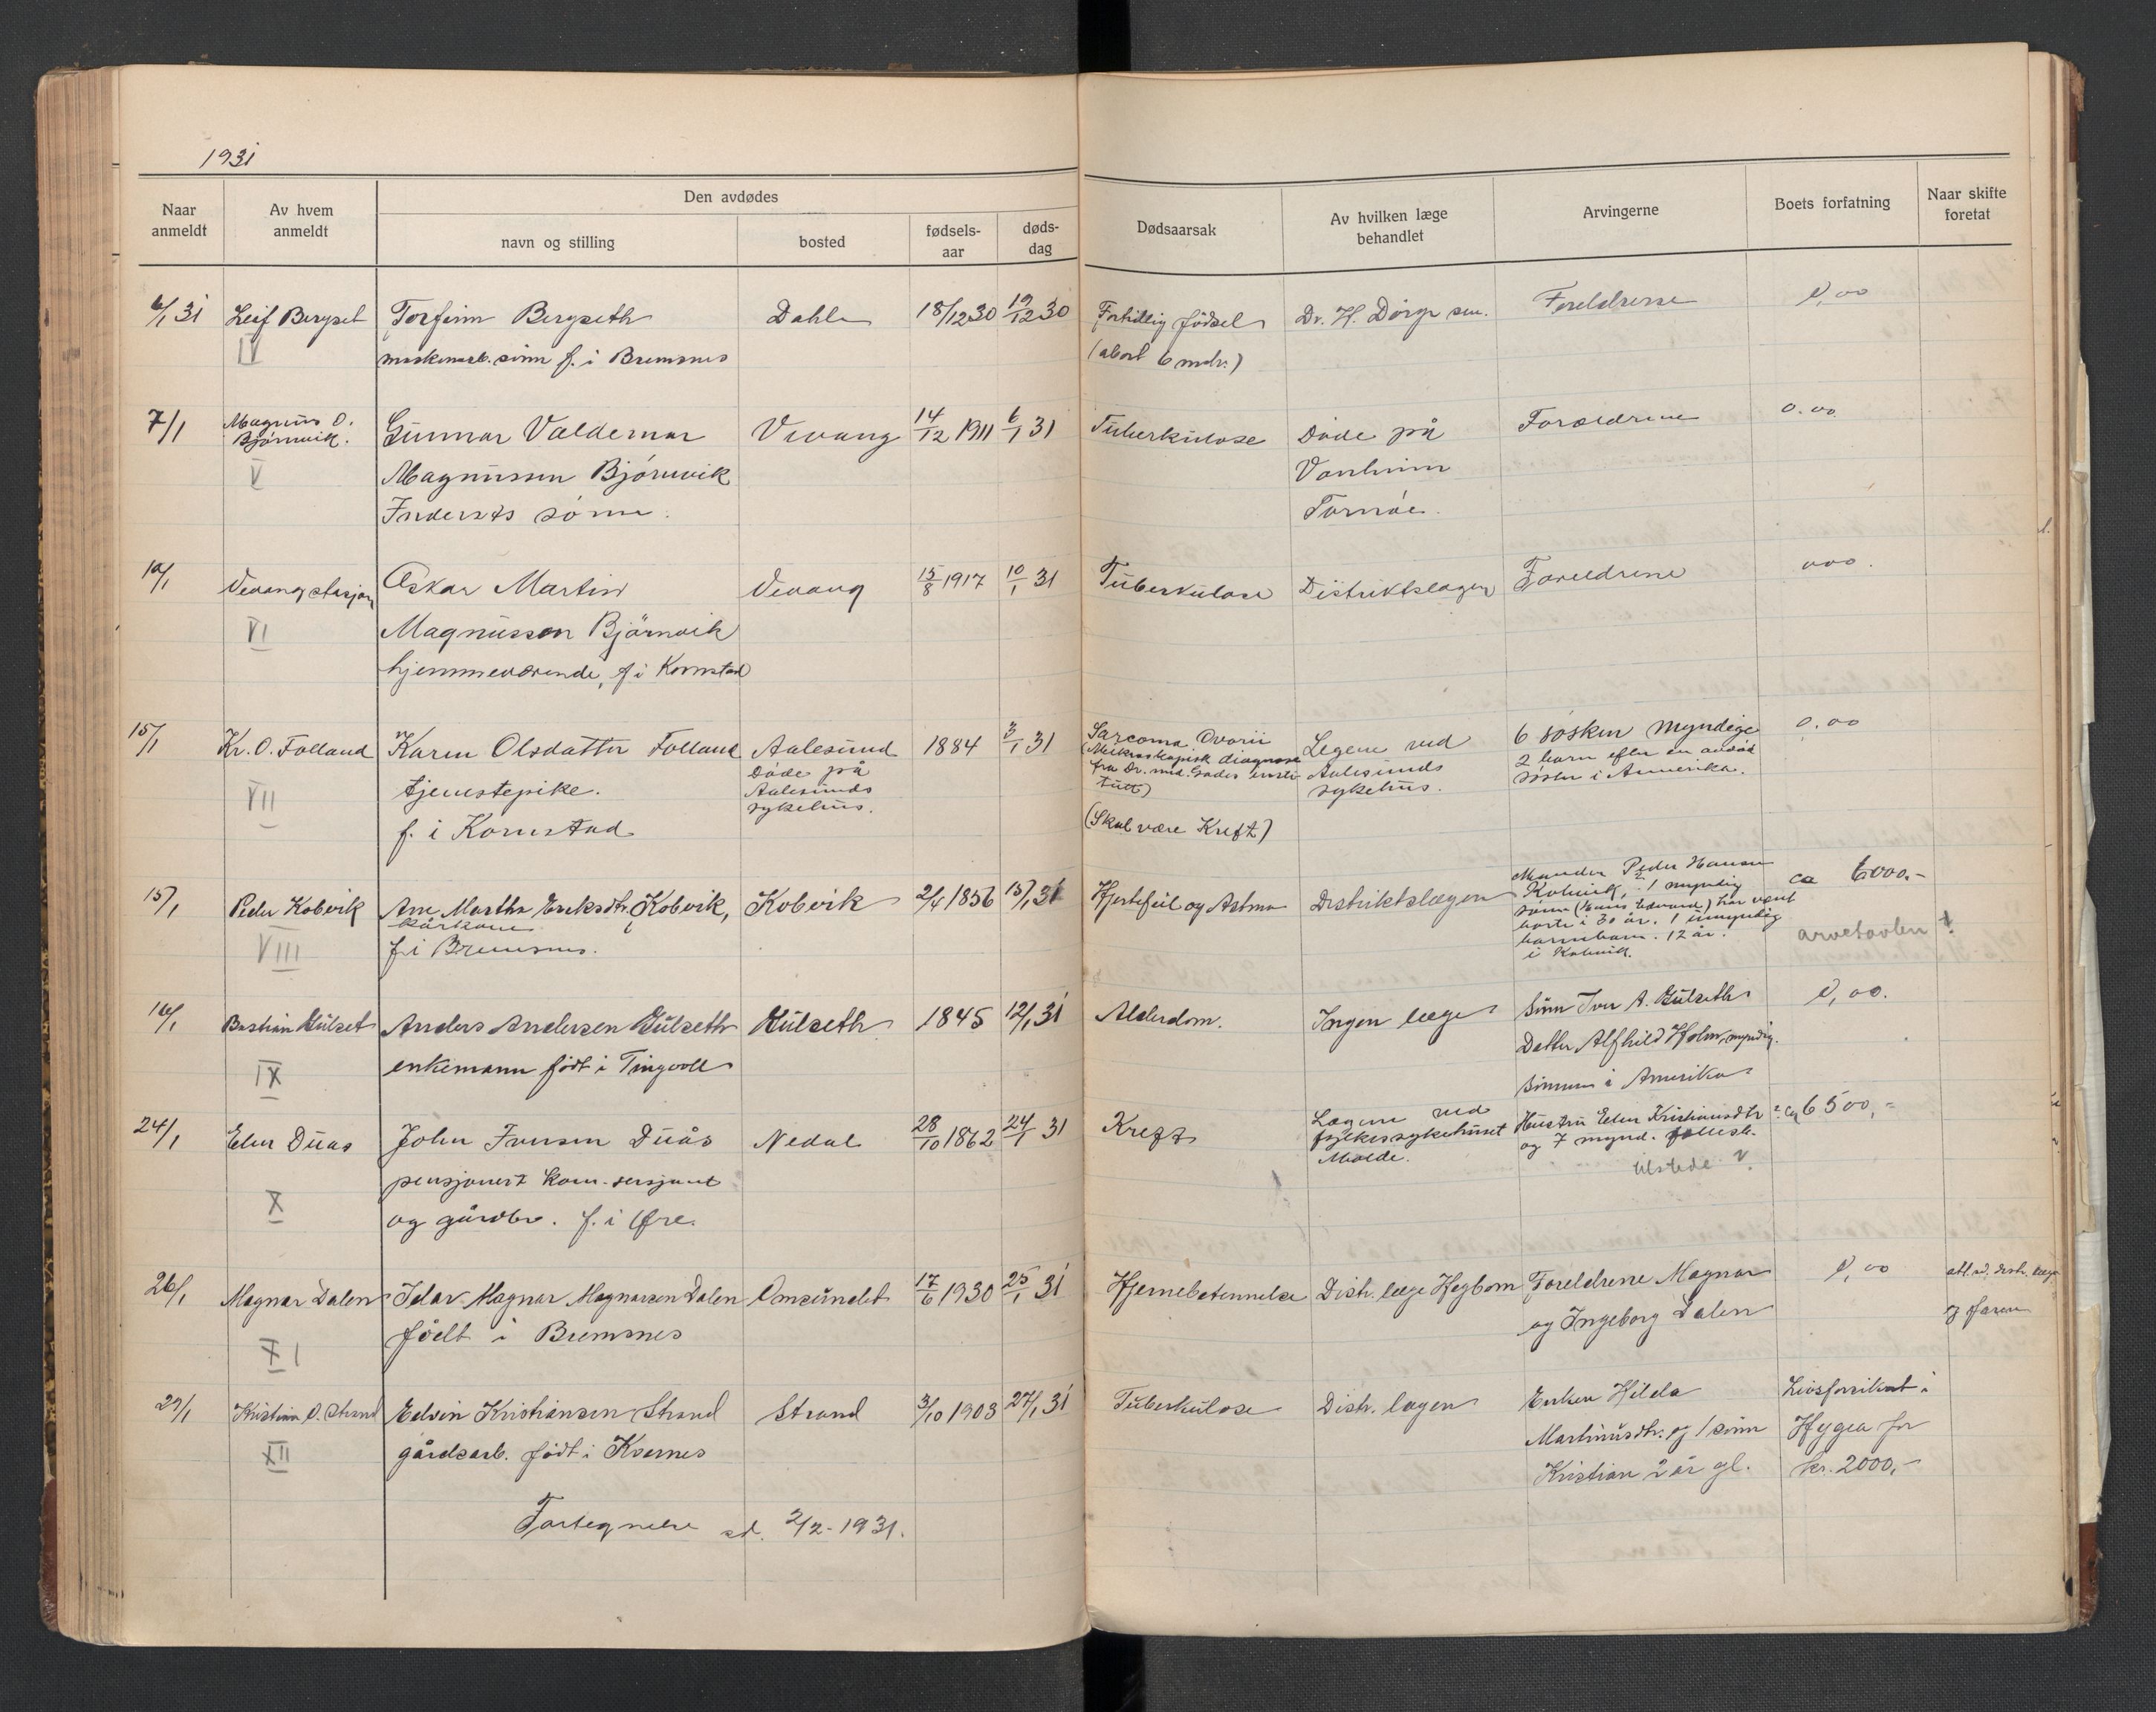 1931
Naar anmeldt
Av hvem anmeldt
Den avdødes
navn og stilling
bosted
fødsels-aar
døds-dag
Dødsaarsak
Av hvilken læge behandlet
Arvingerne
Boets forfatning
Naar skifte foretat
6/1 31
Leif Bergset
IV
Torfinn Bergseth
maskinarb. sønn f. i Bremsnes
Dahle
18/12 30
19/12 30
Fortidlig fødsel
(abort 6 mdr.)
Dr. H. Dørge sen.
Foreldrene
0,00
7/1
Magnus O.
Bjørnvik.
V
Gunnar Valdemar
Magnussen Bjørnvik
Indersts sønn.
Vevang
14/12 1911
6/1 31
Tuberkulose
Døde på
Vonheim
Tornøe.
Forældrene
0.00
10/1
Vevang stasjon
VI
Oskar Martin
Magnussen Bjørnvik
hjemmeværende, f i Kornstad
Vevang
15/8 1917
10/1 31
Tuberkulose
Distriktslægen
Foreldrene
000.
15/1
Kr. O. Folland
VII
Karen Olsdatter Folland
tjenestepike.
f. i Kornstad
Aalesund
Døde på
Aalesunds
sykehus.
1884
3/1 31
Sarcoma Ovarii
(Mikroskopisk diagnose
fra Dr. med. Gades insti-
tutt)
(Skal være Kreft)
Legene ved
Aalesunds
sykehus.
6 søsken myndige
2 barn efter en avdød
søster i Amerika.
0.00
15/1
Peder Kobvik
VIII
Ane Martha Eriksdtr. Kobvik,
kårkone
f. i Bremsnes.
Kobvik
2/4 1856
15/1 31
Hjertefeil og Astma
Distriktslægen
Manden Peder Hansen
Kobvik, 1 myndig
sønn (Hans Edvard) har vært
borte i 30 år. 1 umyndig
barnebarn. 12 år.
i Kobvik.
ca 6000.-
arvetavlen
16/1
Bastian Hulset
IX
Anders Andersen Hulseth
enkemann født i Tingvoll
Hulseth
1845
12/1 31
Alderdom.
Ingen læge
Sønn Iver A. Hulseth
Datter Alfhild Holm, myndig.
Sønnen i Amerika
0,00.
24/1
Elen Duås
X
John Iversen Duås
pensjonert kom.sersjant
og gårdbr. f. i Øre.
Nedal
28/10 1862
24/1 31
Kreft
Lægene ved
fylkessykehuset
Molde.
Hustru Elen Kristiansdtr
og 7 mynd. fellesb.
tilstede
ca 6500,-
26/1
Magnar Dalen
XI
Idar Magnar Magnarsen Dalen
født i Bremsnes
Omsundet
17/6 1930
25/1 31
Hjernebetennelse
Distr. læge Hegbom
Foreldrene Magnar
og Ingeborg Dalen
0,00
att. ad. distr. læge
og faren
29/1
Kristian O. Strand
XII
Edvin Kristiansen Strand
gårdsarb. født i Kvernes
Strand
3/10 1903
27/1 31
Tuberkulose
Distr. lægen
Enken Hilda
Martinusdtr. og 1 sønn
Kristian 2 år gl.
Livsforsikret i
Hygea for
kr. 2000,-
Fortegnelse sd. 2/2-1931.